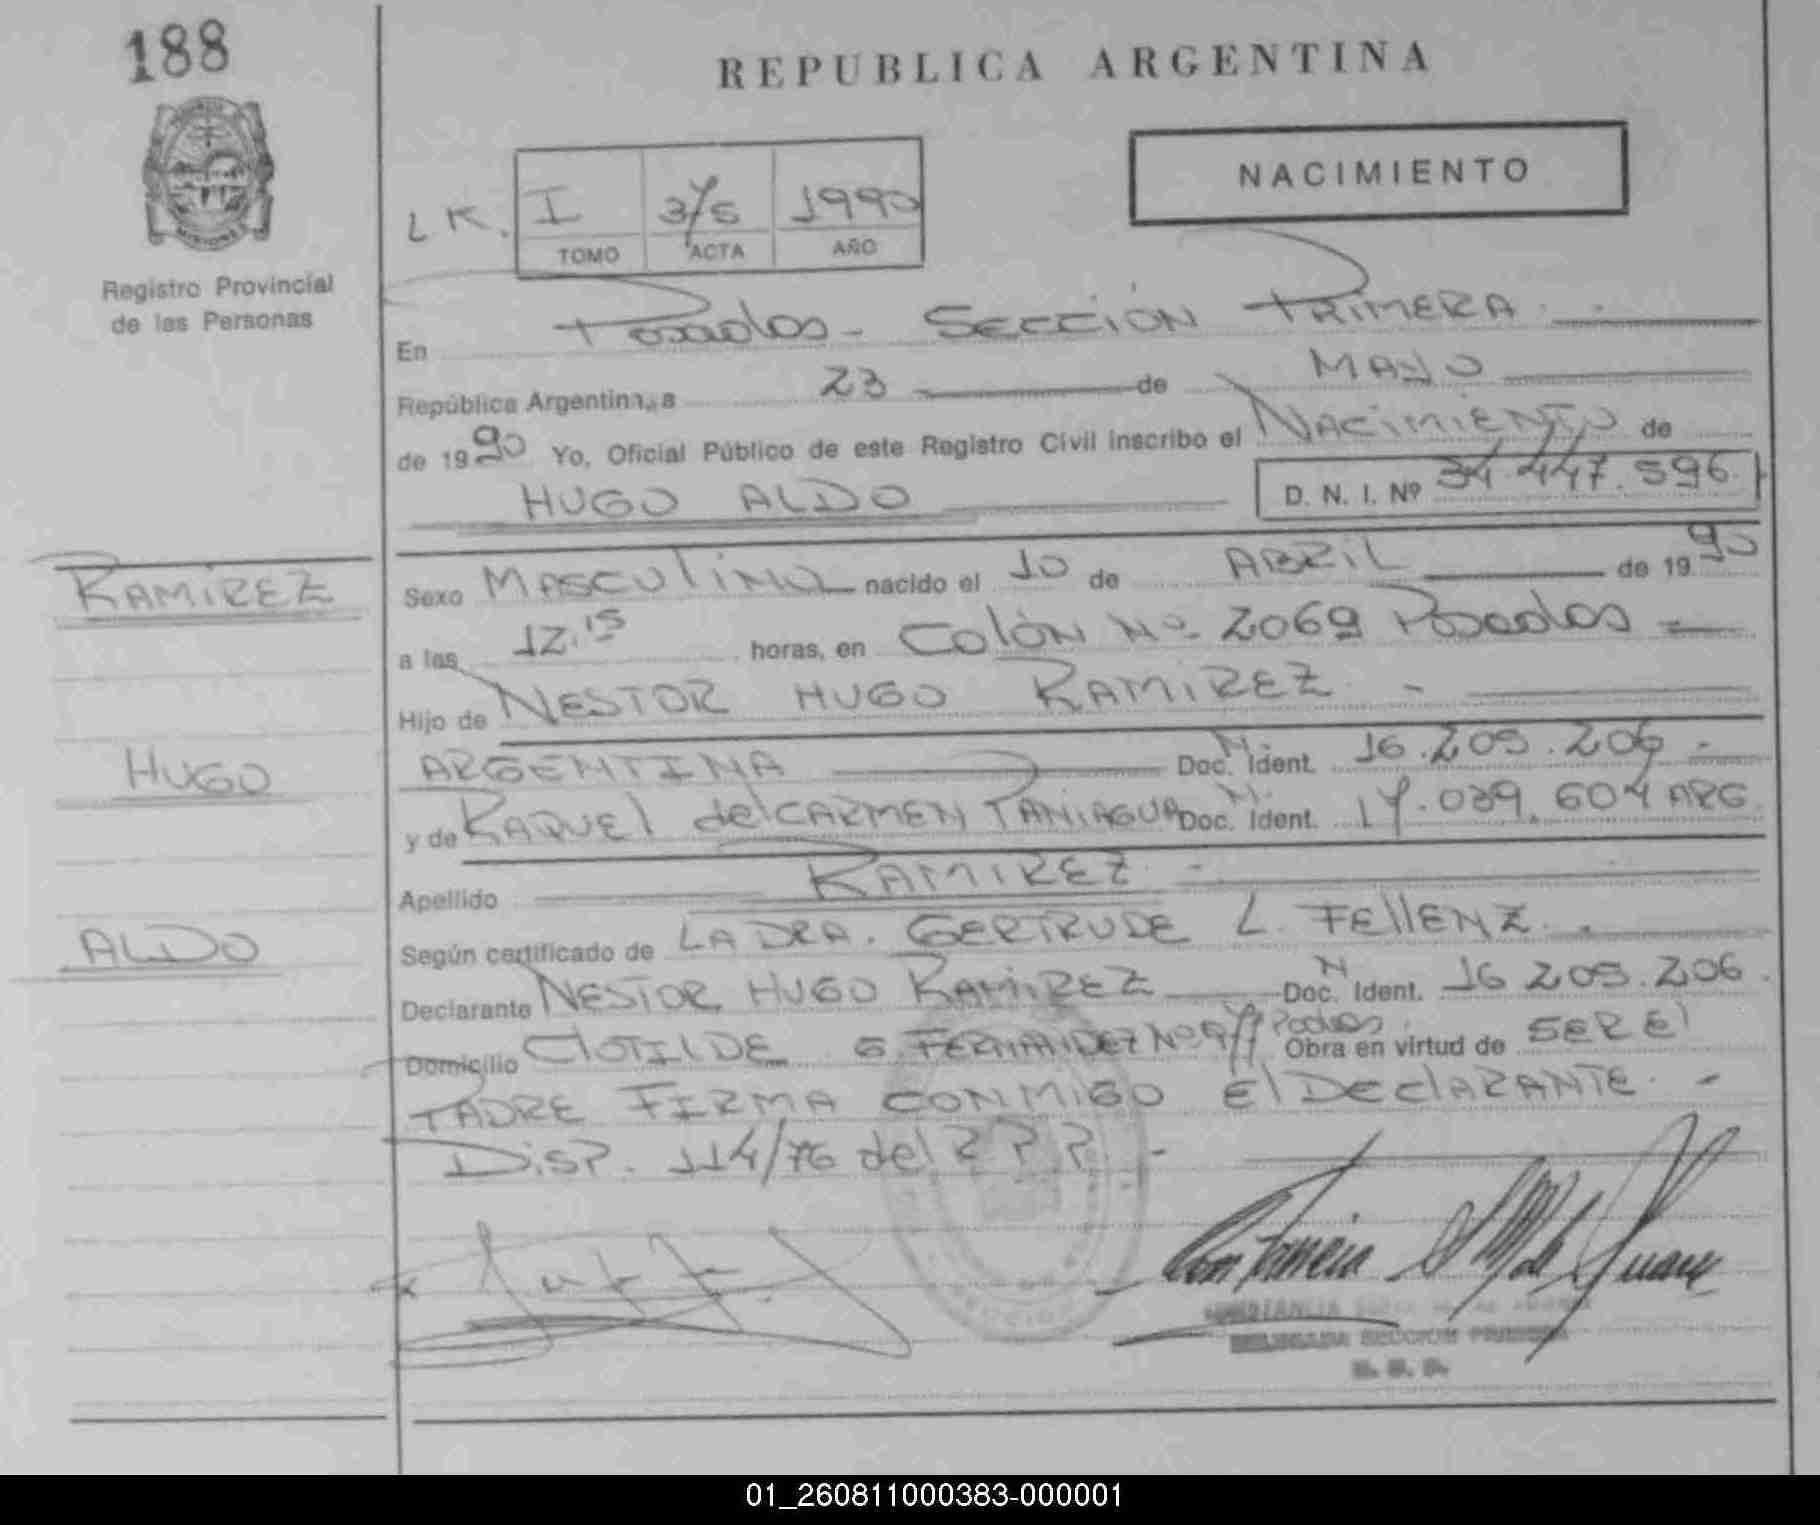 188
REPUBLICA ARGENTINA
NACIMIENTO
L K. I 1990
TOMO ACTA AÑO
Registro Provincial
de las Personas
MISIONES
En Posadas - SECCIÓN PRIMERA.
República Argentina, a 23 de MAYO
de 1990 Yo, Oficial Público de este Registro Civil inscribo el NACIMIENTO de
HUGO ALDO D. N. I. Nº 34.447.596.
RAMIREZ
HUGO
ALDO
Sexo MASCULINO nacido el 10 de ABRIL de 1990
a las 12.15 horas, en COLÓN Nº 2069 Posadas
Hijo de NESTOR HUGO RAMIREZ. -
ARGENTINA Doc. N. Ident. 16.205.206 -
y de RAQUEL del CARMEN PANIAGUA Doc. N. Ident. 17.039.604 ARG.
Apellido RAMIREZ. -
Según certificado de LA DRA. GERTRUDE L. FELLENZ.
Declarante NESTOR HUGO RAMIREZ Doc. N Ident. 16 205.206.
Domicilio CLOTILDE G. FERNANDEZ Nº Obra en virtud de SER El
PADRE FIRMA CONMIGO El DEClARANTE. -
DISP. 114/76 del R P P. -
SECCION PRIMERA
01_260811000383-000001